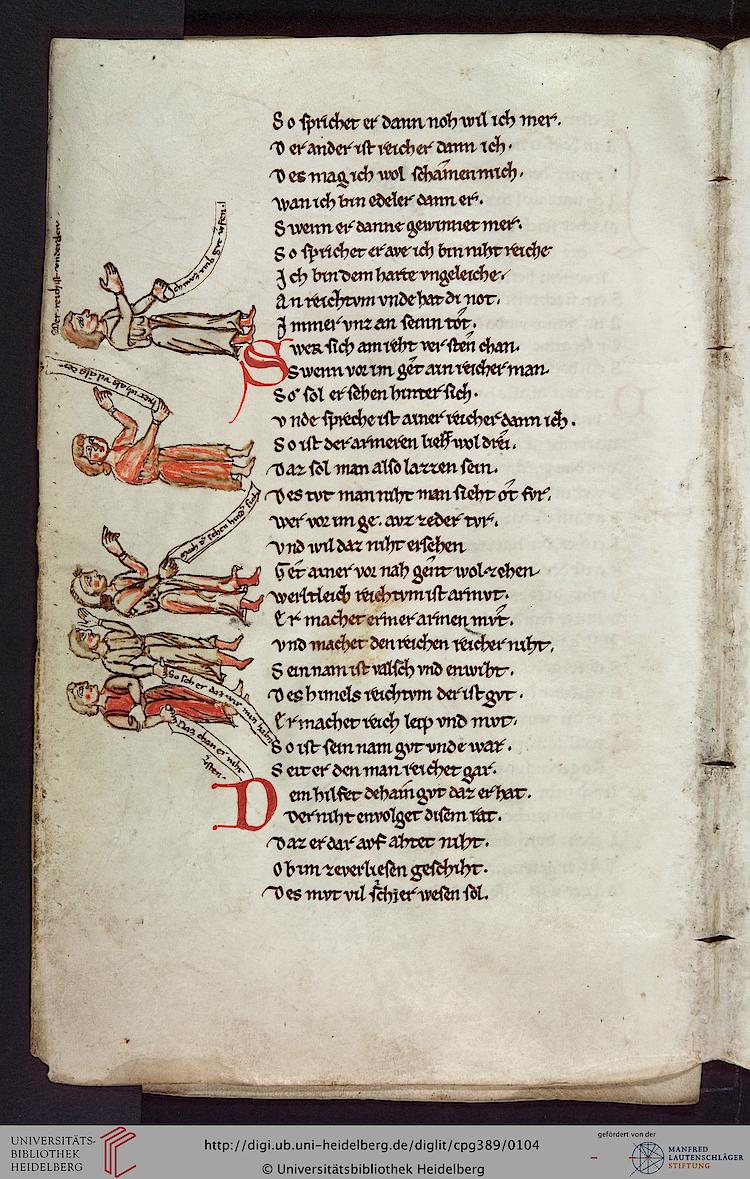 So sprichet er dann noh wil ich mer.
Der ander ist reicher dann ich.
Des mag ich wol schamen mich.
wan ich bin edeler dann er.
Swenn er danne gewinnet mer.
So sprichet er ave ich bin niht reiche
Ich bin dem harte vngeleiche.
An reichtvm vnde hat di not.
Immer vnz an seinn tot.
Swer sich am reht versten chan.
Swenn vor im get ain reicher man.
So sol er sehen hinter sich.
vnde spreche ist ainer reicher dann ich.
So ist der armeren wol drei.
Daz sol man also lazzen sein.
Des tvt man niht man sieht ot for.
wer vor im ge. avz zeder tvr.
vnd wil daz niht ersehen
Get ainer vor nah gent wol zehen
werltleich reichtvm ist armvt.
Er machet ermer armen mvt.
vnd machet den reichen reicher niht.
Sein nam ist valsch vnd enwiht.
Des himels reichtvm der ist gvt.
Er machet reich leip vnd mvt.
So ist sein nam gvt vnde war.
Seit er den man reichet gar.
Dem hilfet dehain gvt daz er hat.
Der niht envolget disem rat.
Daz er dar avf ahtet niht.
Ob im ze verliesen geschiht.
Des mvt vil schier wesen sol.
So seh er daz wir nun
Daz chan er niht
UNIVERSITÄTS-
BIBLIOTHEK
HEIDELBERG
http://digi.ub.uni-heidelberg.de/diglit/cpg389/0104
© Universitätsbibliothek Heidelberg
gefördert von der
MANFRED
LAUTENSCHLÄGER
STIFTUNG